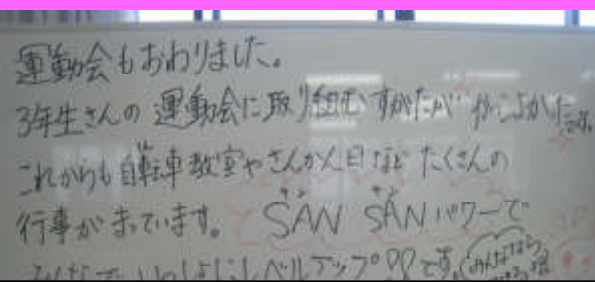 運動会もおわりました。
3年生さんの運動会に取り組むすがたがかっこよかったです。
これからも自転車教室やさんかん日などたくさんの
行事がまっています。SANサン SANサンパワーで
みんなでいっしょにレベルアップ です